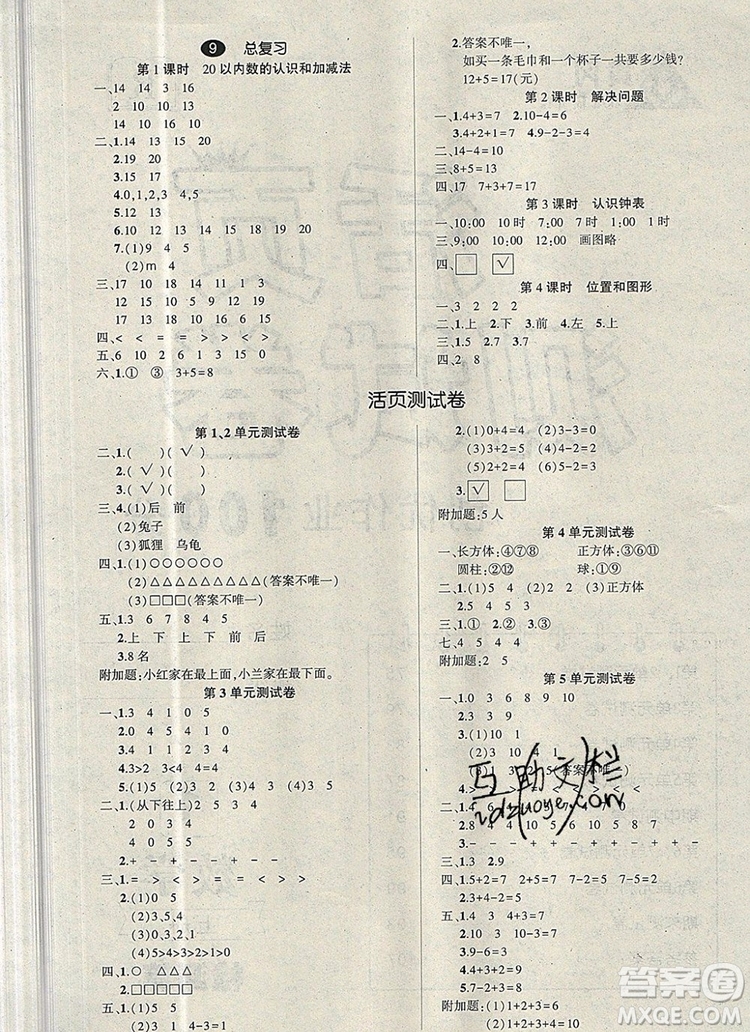 9 总复习
第1课时 20以内数的认识和加减法
一、14 14 3 16
2 10 10 19
14 10 16 10
二、1.14 13 15 20
2.19 15
3.17 13
4.0,1,2,3 4,5
5.12 13
6.12 13 14 15 16 18 19 20
7.(1)9 4 5
(2)m 4
三、17 10 18 14 17
10 15 19 18 11
13 10 17 13 13
四、< < = = > >
五、6 10 2 6 1 3 15 0
六、1.① ③ 3+5=8
2.答案不唯一,
如买一条毛巾和一个杯子一共要多少钱?
12+5=17(元)
第2课时 解决问题
一、1.4+3=7 2.10-4=6
3.4+2+1=7 4.9-2-2=5
二、14-4=10
三、8+5=13
四、17 7+3+7=17
第3课时 认识钟表
一、10:00 10时 7:00 7时 1:00 1时
三、9:00 10:00 12:00 画图略
四、□ ☑
第4课时 位置和图形
一、3 2 2 2
二、1.上 2.下 3.前 4.左 5.上
三、1.5 2.7 3.7
四、2 8
活页测试卷
第1、2单元测试卷
二、1.( )( )(√)
2.(√)( )( )
3.(√)( )( )
三、4.(1)后 前
(2)兔子
(3)狐狸 乌龟
四、1.(1)○○○○○○
(2)△△△△△△△△△(答案不唯一)
(3)□□□(答案不唯一)
五、1.3 6 7 8 4 5
2.上 下 上 下 前 后
3.8名
附加题:小红家在最上面,小兰家在最下面。
第3单元测试卷
一、1.3 4 1 0 5
2.0 4 5 4 1 0
3.4 0 2 2 1 0
4.3>2 1<4 2=2
5.(1)2 4 5 (2)3 (3)4 5
二、1.(从下往上)
2 0 3 4
4 0 5 5
2.+ - + - + -
三、1.= < = = > > >
2.(1)0 5
(2)0,3,5
(3)0,3,4
(4)5>4>3>2>1>0
四、1.○ △△△
2.□□□□□
五、1.(1)5 4 3 4
(2)3 1 4-3=1
2.(1)0+4=4 (2)3-3=0
(3)3+2=5 (4)5-1=4
(5)2+2=4 (6)2-0=2
3.☑ □
附加题:5人
第4单元测试卷
一、长方体:④⑦⑧ 正方体:③⑥⑩
圆柱:②⑫ 球:①⑨
二、1.(1)5 (2)① (3)正方体
2.4 5 3
六、1.① 2.② 3.③
七、4 5 4 4
附加题:2 5
第5单元测试卷
一、1.0 3 6 8 9 10
2.3 9
3.(1)10 1
(2)3 10 4 1
互助文栏
二、1.3 2.9
三、1.5+2=7 2.6-2=4 3.7-5=2
4.10-8=2
四、1.4 3 4+3=7 3+4=7
2.10-6=4
3.9-6=3
4.3+4+2=9
5.7-2-2=3
附加题:(1)1+2+3=6
答案圈
MXQE.COM